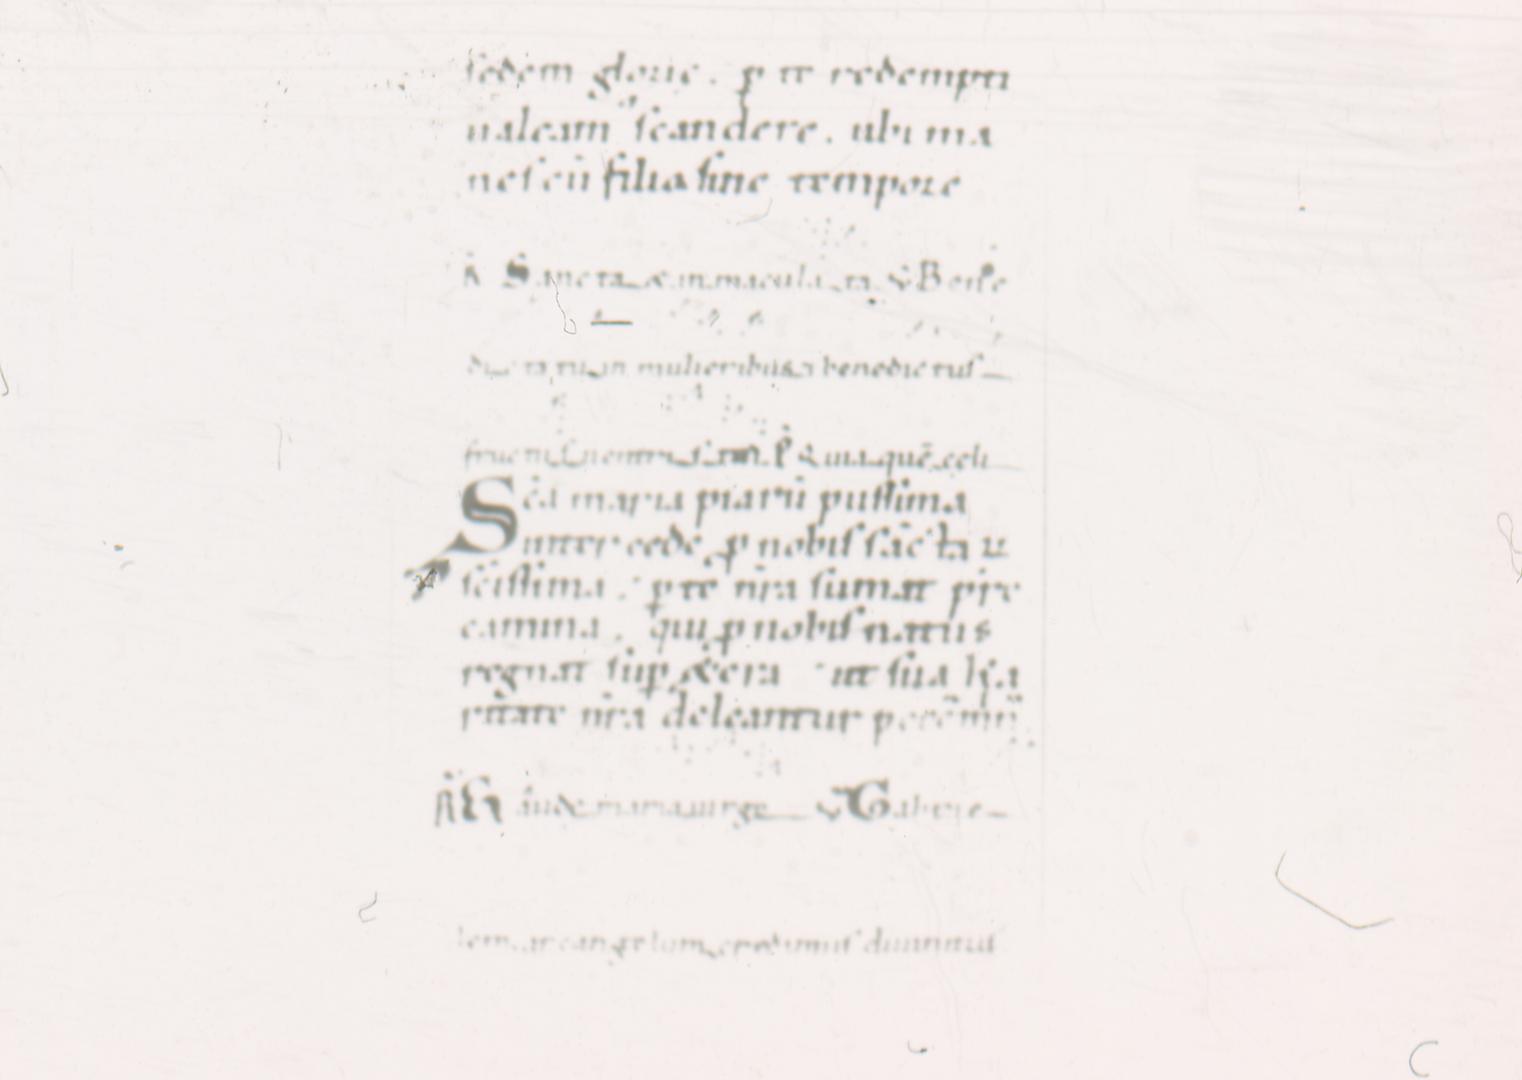 sedem glorie. p te redempti
ualeam scandere. ubi ma
nes cū filio sine tempore
R Sancta & immaculata. V Bene
dicta tu in mulieribus & benedictus
fructus uentris tui. R Quia quē celi
Scā maria piarū piissima
intercede p nobis sāctarū
scissima. p te nr̄a sumat pre
camina. qui p nobis natus
regnat sup &era ut sua
ritate nr̄a deleantur
R Gaude maria uirgo V Gabrie
lem archangelum credimus diuinitus